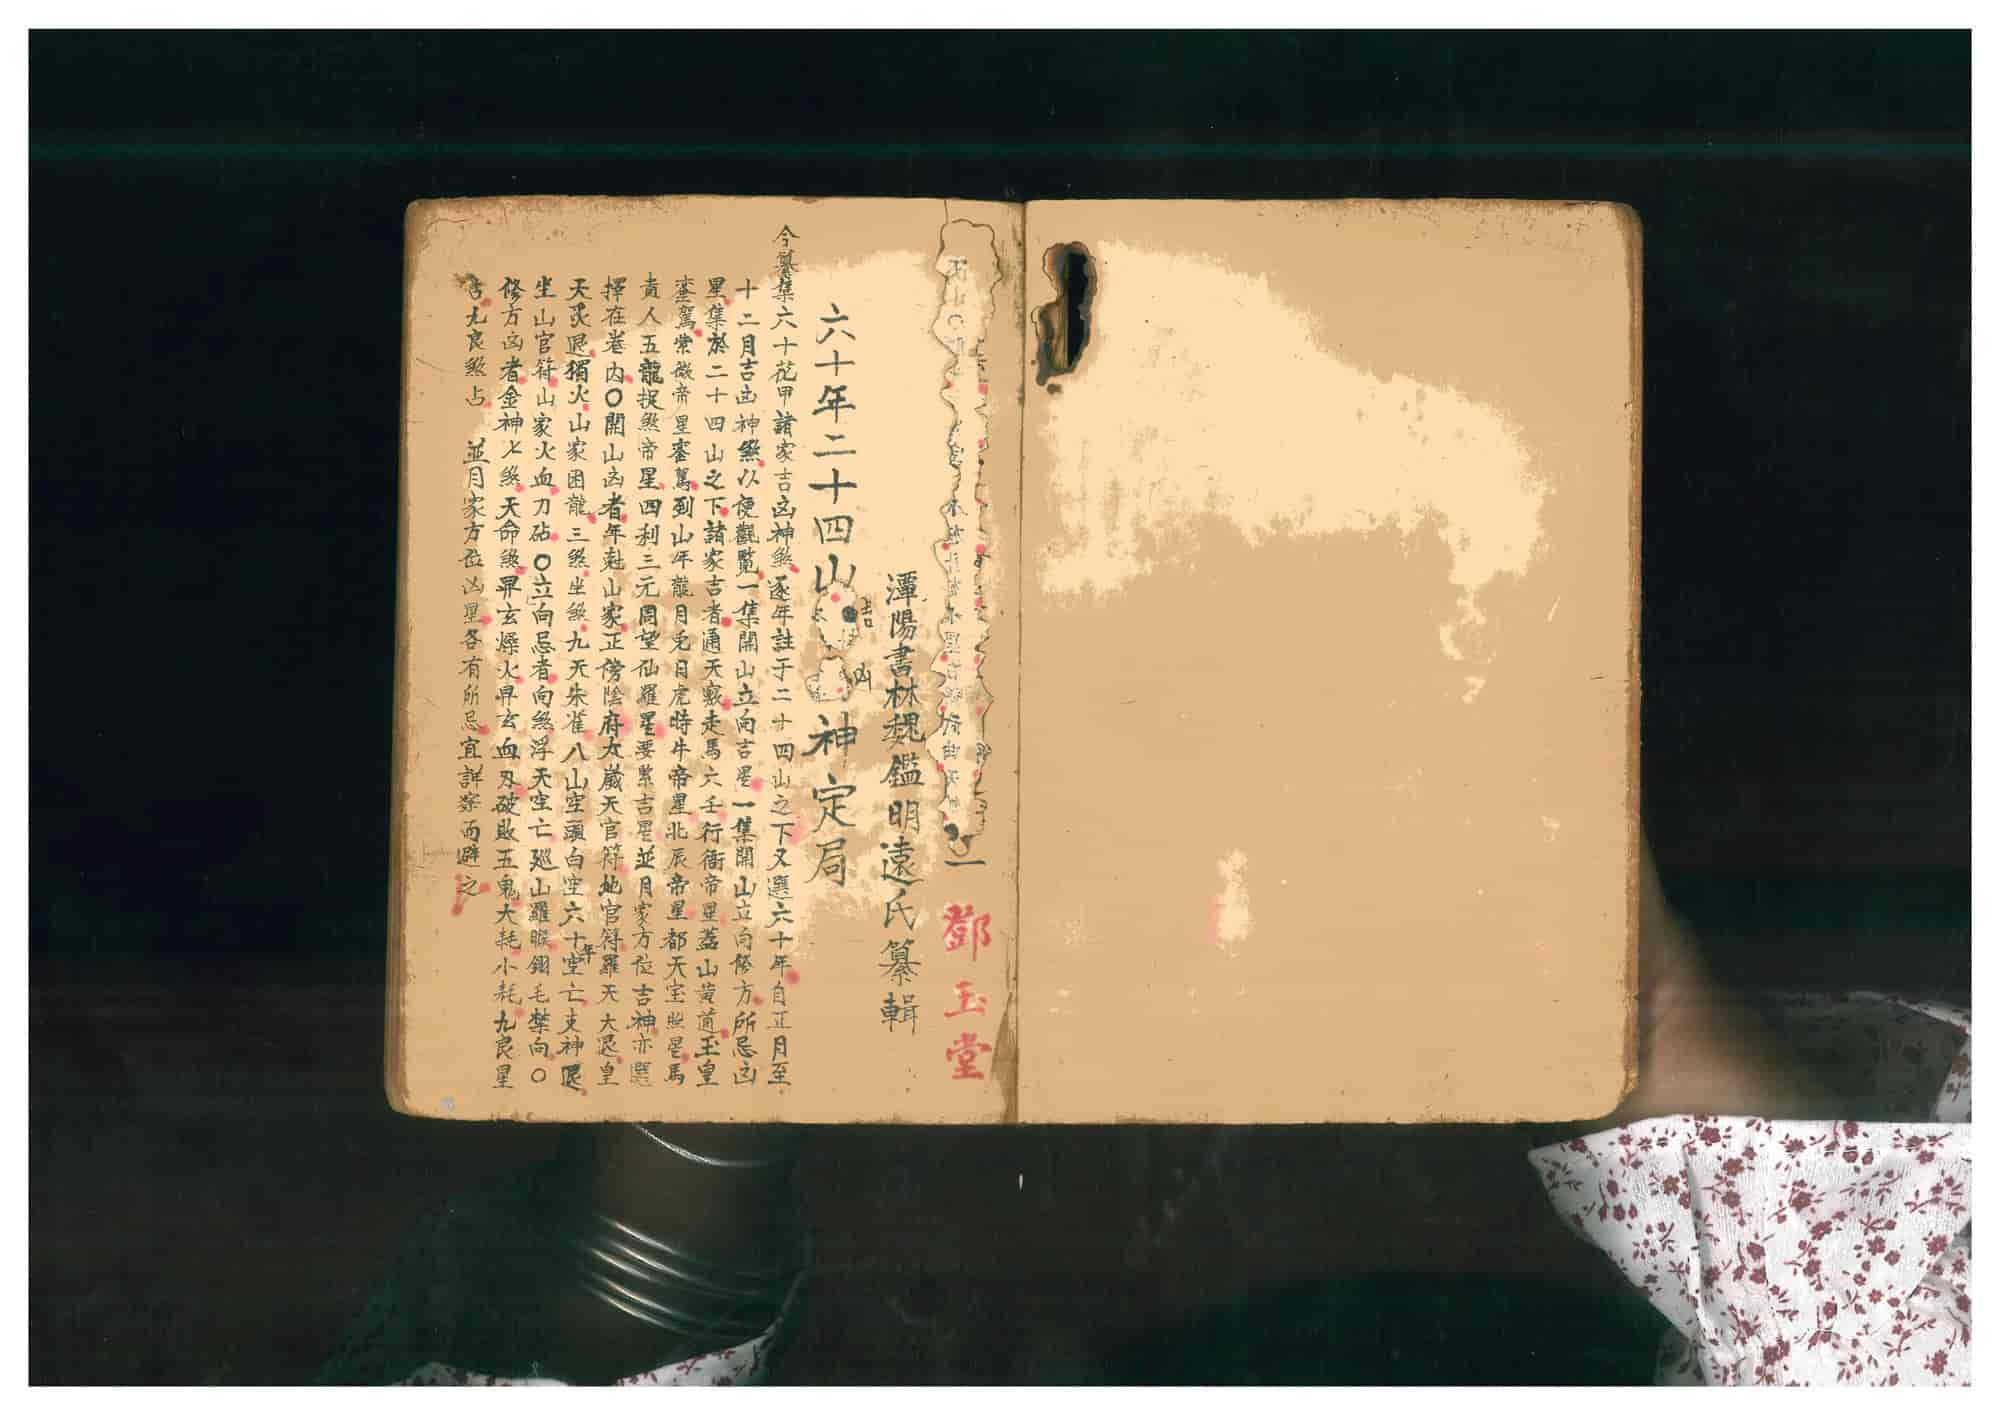 鄧玉堂
潭陽書林魏鑑明遠氏纂輯
六十年二十四山吉凶神定局
今纂集六十花甲諸家吉凶神煞逐年註于二十四山之下又選六十年自正月至
十二月吉凶神煞以便觀覽一集開山立向吉星一集開山立向修方所忌凶
星集於二十四山之下諸家吉者通天竅走馬六壬行衙帝星蓋山黃道玉皇
鑾駕紫微帝星鑾駕到山年龍月兎日虎時牛帝星北辰帝星都天宝照星馬
貴人五龍捉煞帝星四利三元周望仙羅星要紫吉星並月家方位吉神亦選
擇在卷内〇開山凶者年尅山家正傍陰府太歲天官符地官符羅天大退皇
天炙退獨火山家困龍三煞坐煞九天朱雀八山空頭白空六十年空亡支神退
坐山官符山家火血刀砧〇立向忌者向煞浮天空亡廵山羅睺翎毛禁向〇
修方凶者金神七煞天命煞畢玄燥火畢玄血刃破敗五鬼大耗小耗九良星
占九良煞占 並月家方位凶星各有所忌宜詳察而避之